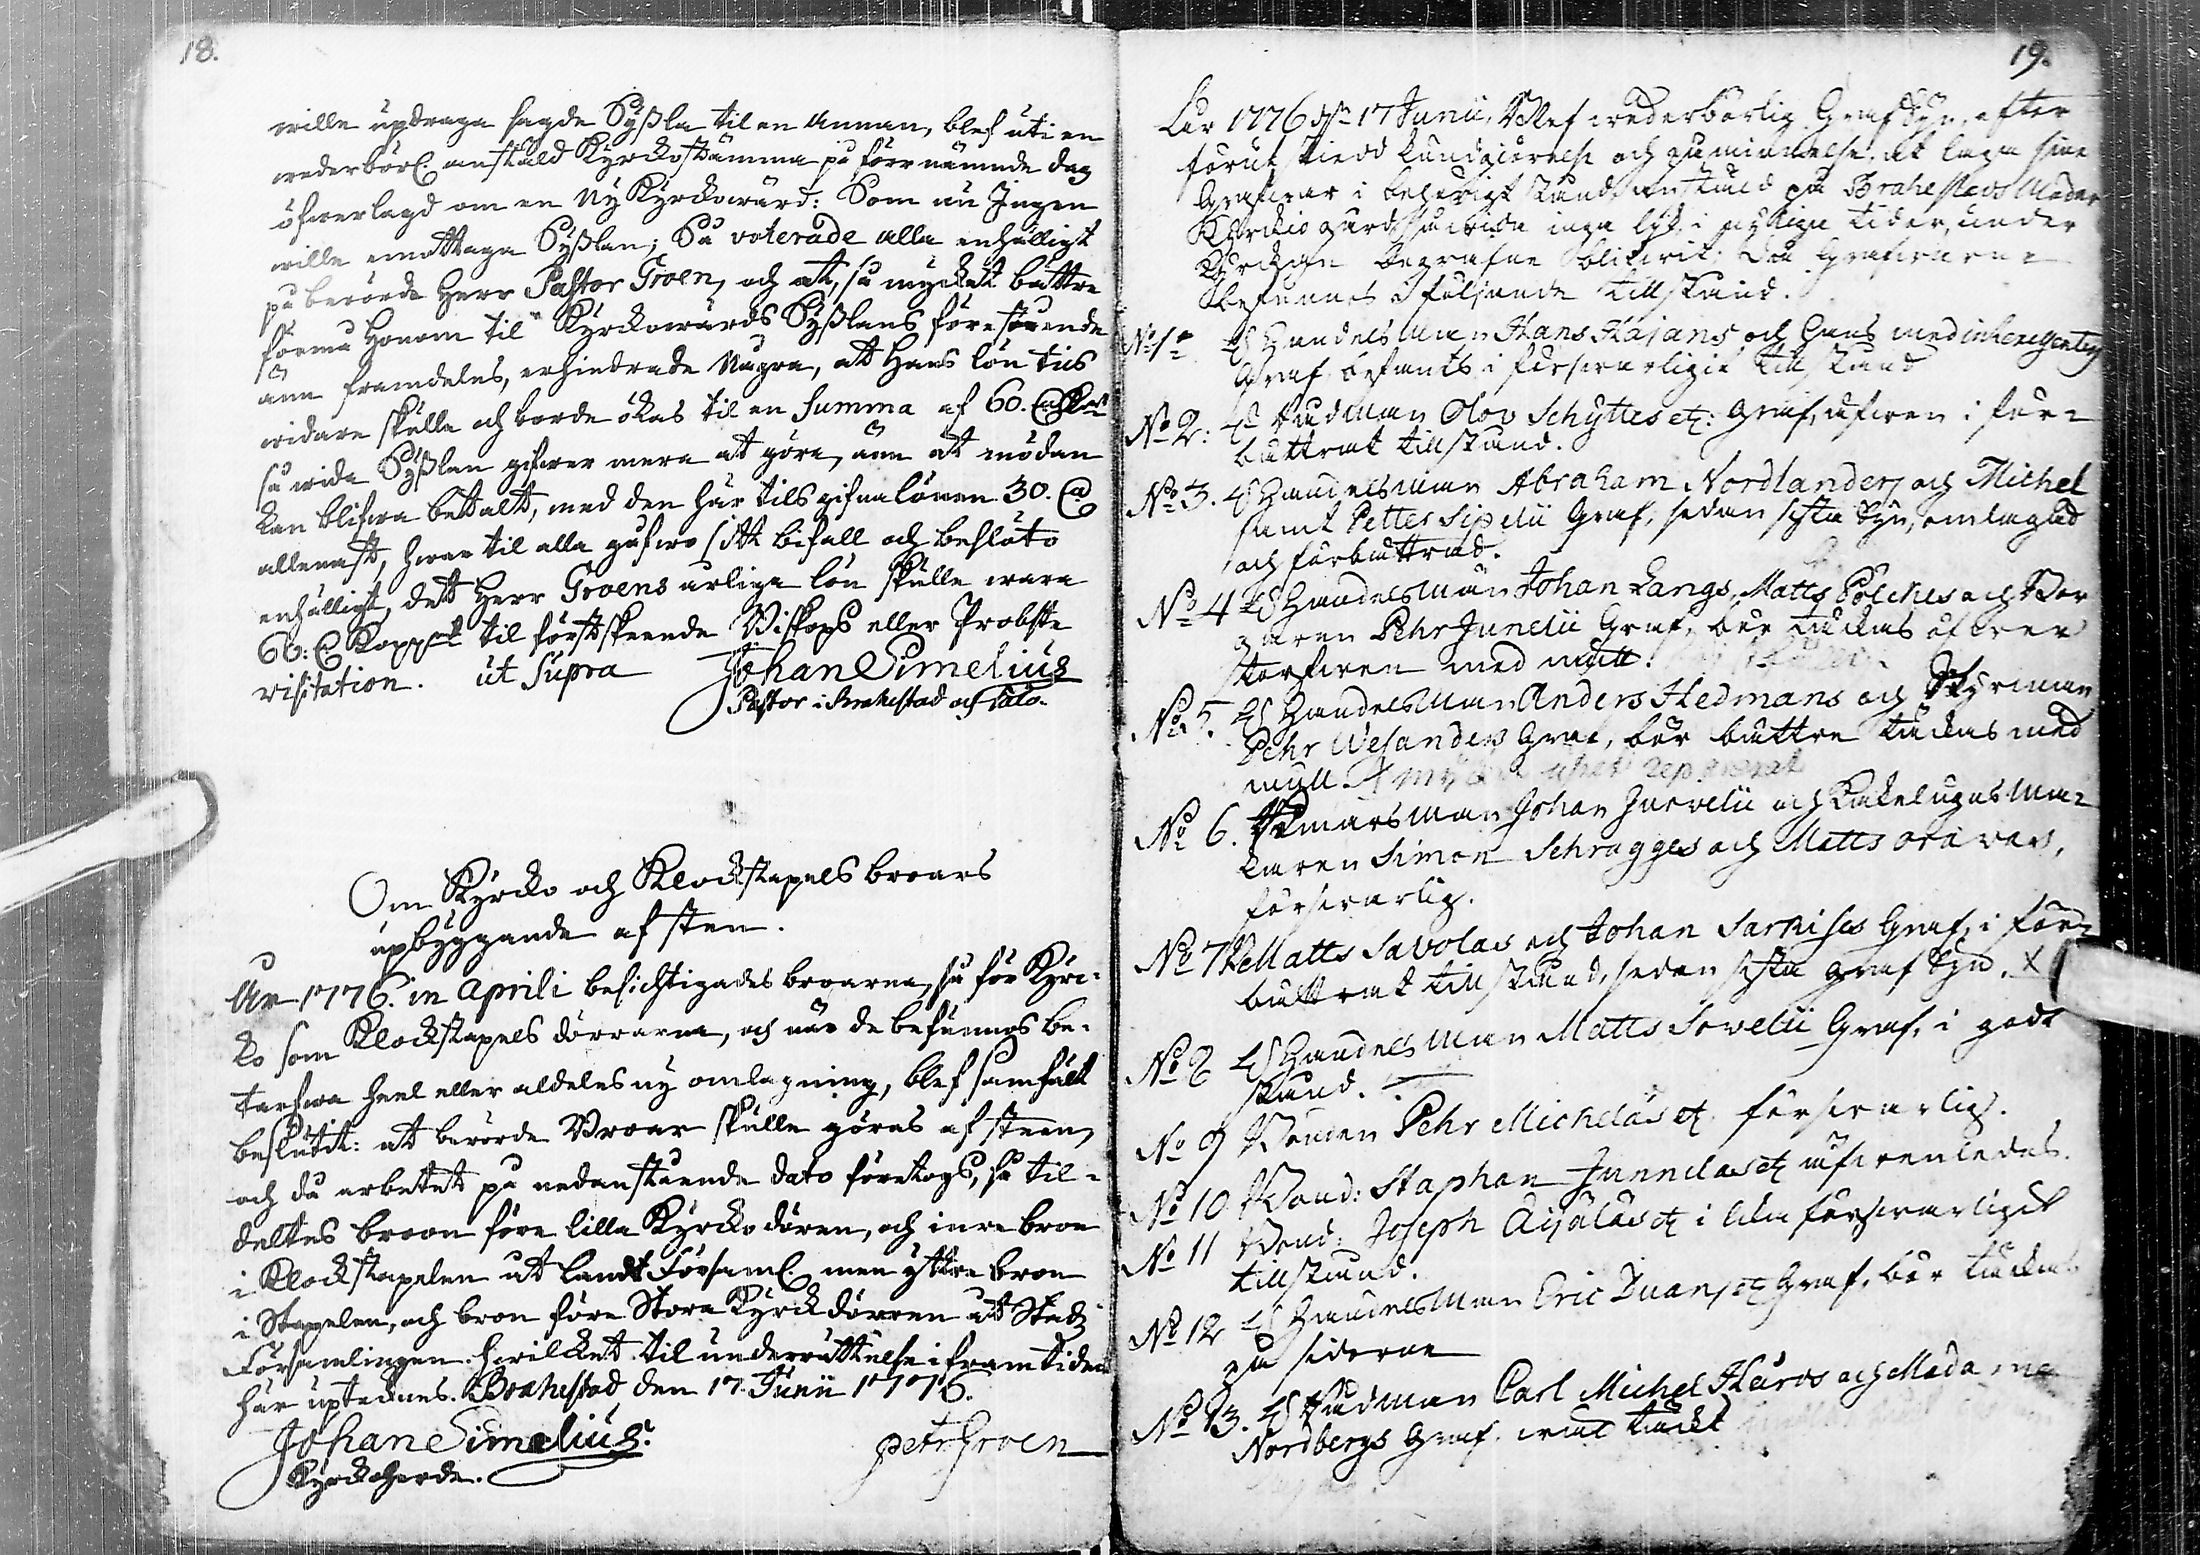 18.
wille updraga sagde Sysßla til en annan, blef uti en
wederbörl. anstäld Kyrckostämma på förr nämnde dag
öfwerlagd om en Ny Kyrckowärd: Som nu Ingen
wille emottaga Sysßlan; Så voterade alla enhälligt
på berörde Herr Pastor Groen, och att, så mycket bättre
förmå Honom til Kyrckowärds Sysßlans förestående
än framdeles, erhindrade Några, att Hans lön tils
widare skulle och borde ökas til en Summa af 60.
så wida Sysßlan gifwer mera at göra, än at mödan
kan blifwa bettalt, med den här tils gifna lönen 30.
allenast, hwar til alla gåfwo sitt bifall och beslöto
enhälligt, dett Herr Groens årliga lön skulle wara
60: Kopp.mt til förstskeende Biskops eller Probste
visitation. ut supra Johan Simelius
Pastor i Brahestad och Salo.
Om Kyrcko och Klockstapels broars
upbyggande af sten.
År 1776. in Aprili besichtigades broarna, så för Kyrc-
ko som Klockstapels dörrarna, och när de befunnos be-
tarfwa heel eller aldeles ny omlagning, blef samfält
beslutit: att berörde Broar skulle göras af steen,
och då arbetet på nedanstående dato företogs, så til-
deltes broon före lilla Kyrcko dören, och inre bron
i Klockstapelen åt landt Församl. men yttre bron
i Stapelen, och bron före Stora Kyrckdörren åt Stads
Församlingen. hwilcket til underrättelse i framtiden
här uptecknes. Brahestad den 17. Junii 1776.
Johan Simelius. Petr Groen
Kyrckoherde.
19.
Åhr 1776 d. 17 Junii, Blef wederbörlig Graf Syn, efter
förut skiedd kundgiörelse och påminnelse, at laga sine
Grafwar i behörigt stånd, anstäld på Brahestads Nedre
Kyrckio gård, så wida inga lijk i nyliga tider, under
Kyrckan begrafne blifwit: Då Grafwarne
befunnos i följande tillstånd.
No 1. Handelsman Hans Kajans och Hans med interessenters
Graf, befants i förswarligit tillstånd
No 2: Rådman Olov Schyttes etc: Graf, äfwen i för-
bättrat tillstånd.
No 3. Handelsman Abraham Nordlanders och Michel
samt Petter Sipelii Graf, sedan sista Syn, omlagad
och förbättrad.
No 4 Handelsman Johan Langs, Matts Pölckes och Bor
garen Pehr Junelii Graf, bör täckas öfwer
torfwen med mull.
No 5. Handelsman Anders Hedmans och Styrman
Pehr Wesanders Graf, bör bättre täckas med
mull.
No 6. Länsman Johan Jurvelii och Kakelugns ma-
karen Simon Schragges och Matts
förswarlig.
No 7 Matts Savolas och Johan Sarkises Graf, i för-
bättrat tillstånd, sedan sista graf Syn. X
No 8 Handelsman Matts Sovelii Graf, i godt
stånd.
No 9 Bonden Pehr Michelas etc förswarlig.
No 10 Bond: Staphan Junnilas etc äfwenledes.
No 11 Bond: Joseph Aijälas etc i lika förswarligit
tillstånd.
No 12 Handelsman Eric Duans etc Graf, bör täckas
på siderne
No 13. Rådman Carl Michel Häros och Madame
Nordbergs Graf. wäl täckt